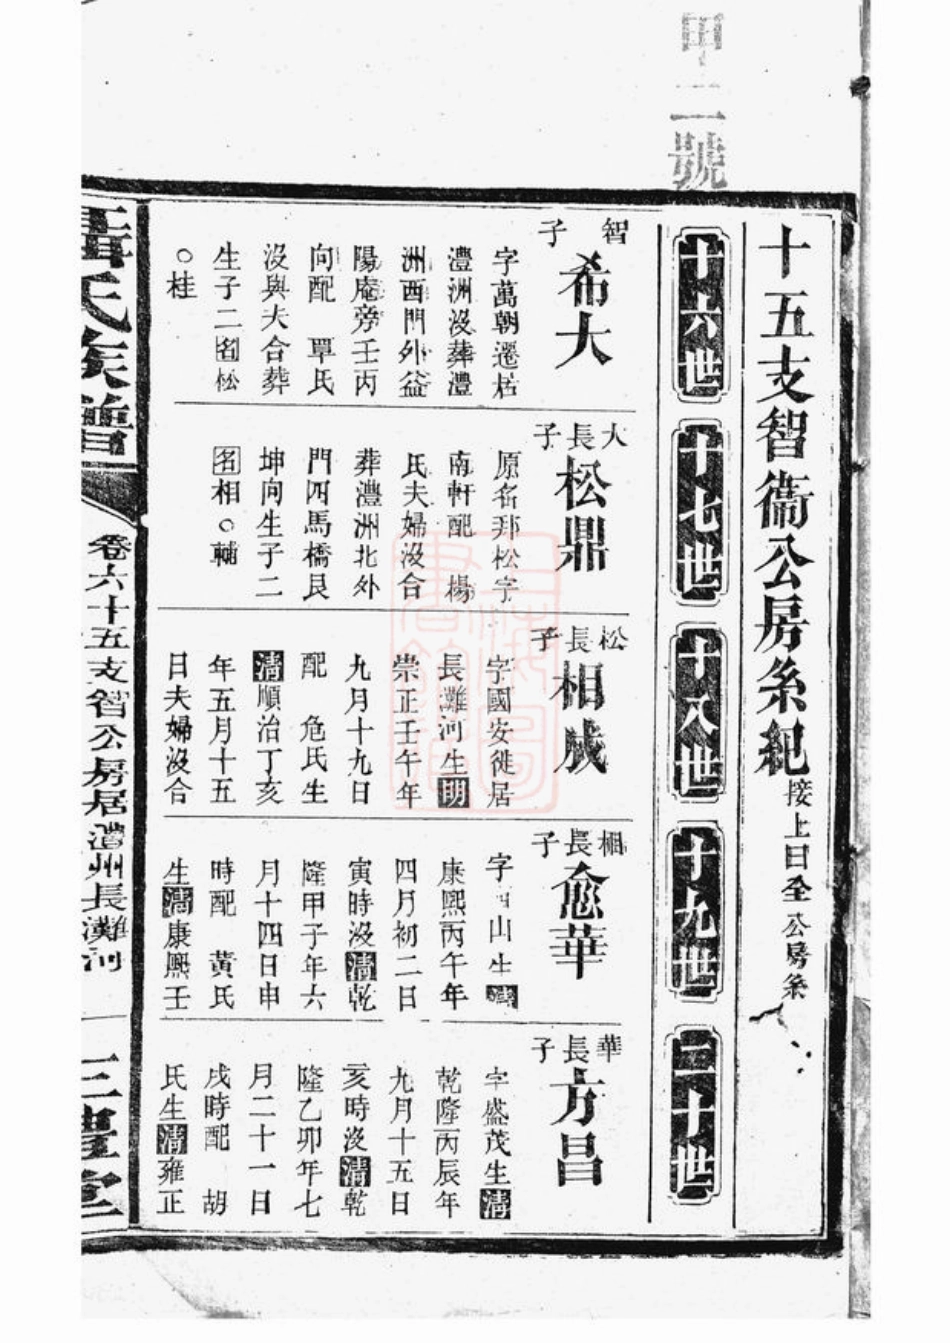 甲二號
十五支智衞公房糸紀接上日全公房糸
十六世
十七世
十八世
十九世
二十世
智子
希大
字萬朝遷居
澧洲沒葬澧
洲西門外益
陽庵旁壬丙
向配 覃氏
沒與夫合葬
生子二名松
○桂
大長子
松鼎
原名邦松字
南軒配 楊
氏夫婦沒合
葬澧洲北外
門四馬橋艮
坤向生子二
名相○輔
松長子
相成
字國安徙居
長灘河生明
崇正壬午年
九月十九日
配 危氏生
清順治丁亥
年五月十五
日夫婦沒合
相長子
愈華
字 山生清
康熙丙午年
四月初二日
寅時沒清乾
隆甲子年六
月十四日申
時配 黃氏
生清康熙壬
華長子
方昌
字盛茂生清
乾隆丙辰年
九月十五日
亥時沒清乾
隆乙卯年七
月二十一日
戌時配 胡
氏生清雍正
氏族譜
卷六十五支智公房居澧州長灘河
三豊堂